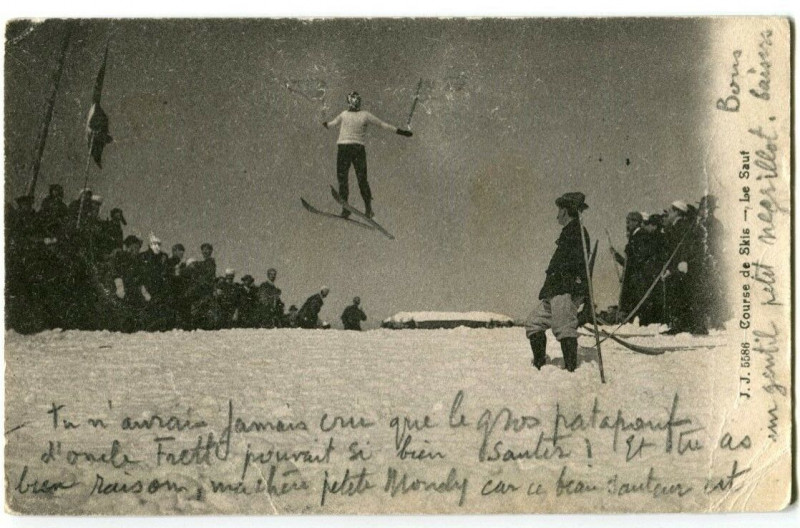 J. J. 5586 Course de Skis — Le Saut
tu n'aurais jamais cru que le gros patapouf
d'oncle Frett pouvait si bien sauter ! Et tu as
bien raison, ma chère petite Mondy car ce beau sauteur est
un gentil petit negrillot. baisers
Bons